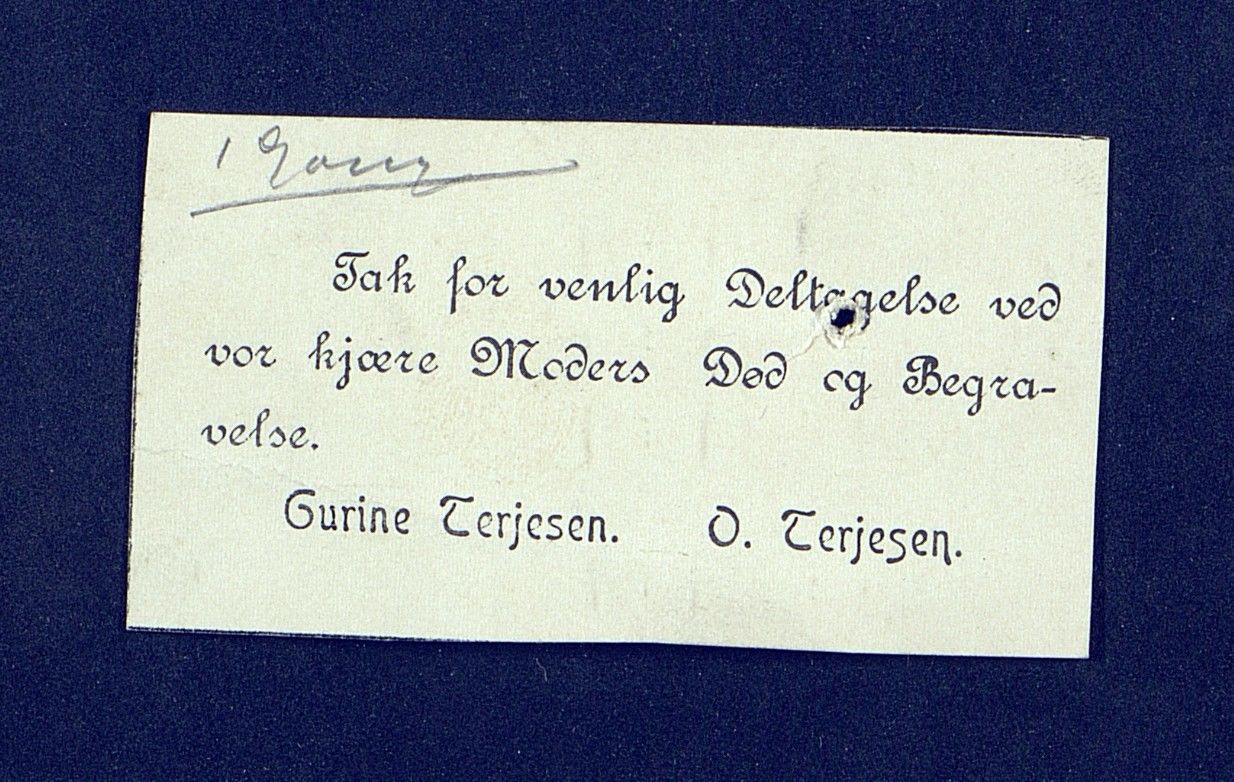 1 Gang
Tak for venlig Deltagelse ved
vor kjære Moders Død og Begra-
velse.
Gurine Terjesen. O. Terjesen.